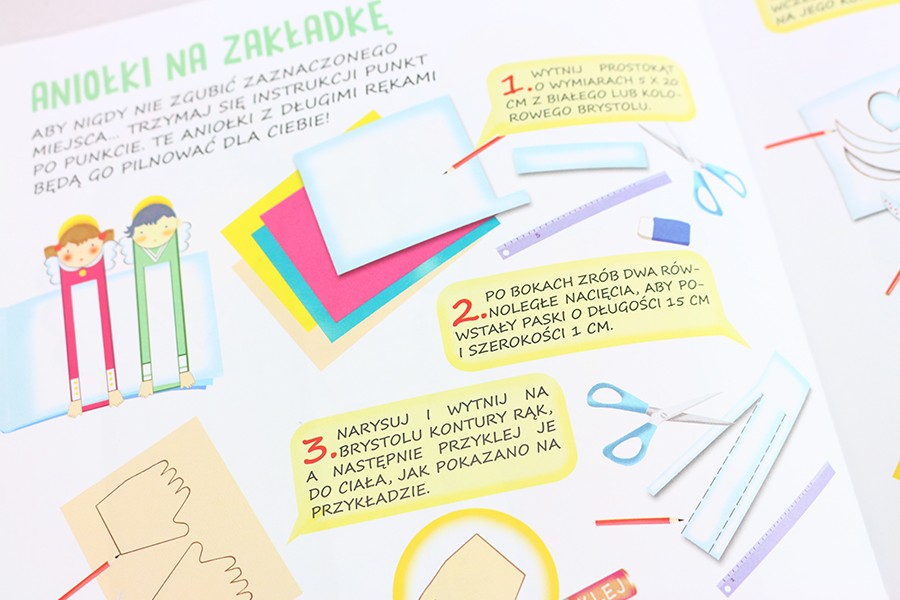 ANIOŁKI NA ZAKŁADKĘ
ABY NIGDY NIE ZGUBIĆ ZAZNACZONEGO
MIEJSCA... TRZYMAJ SIĘ INSTRUKCJI PUNKT
PO PUNKCIE. TE ANIOŁKI Z DŁUGIMI RĘKAMI
BĘDĄ GO PILNOWAĆ DLA CIEBIE!
1. WYTNIJ PROSTOKĄT
O WYMIARACH 5 X 20
CM Z BIAŁEGO LUB KOLO-
ROWEGO BRYSTOLU.
2. PO BOKACH ZRÓB DWA RÓW-
NOLEGŁE NACIĘCIA, ABY PO-
WSTAŁY PASKI O DŁUGOŚCI 15 CM
I SZEROKOŚCI 1 CM.
3. NARYSUJ I WYTNIJ NA
BRYSTOLU KONTURY RĄK,
A NASTĘPNIE PRZYKLEJ JE
DO CIAŁA, JAK POKAZANO NA
PRZYKŁADZIE.
NA JEGO
KLEJ